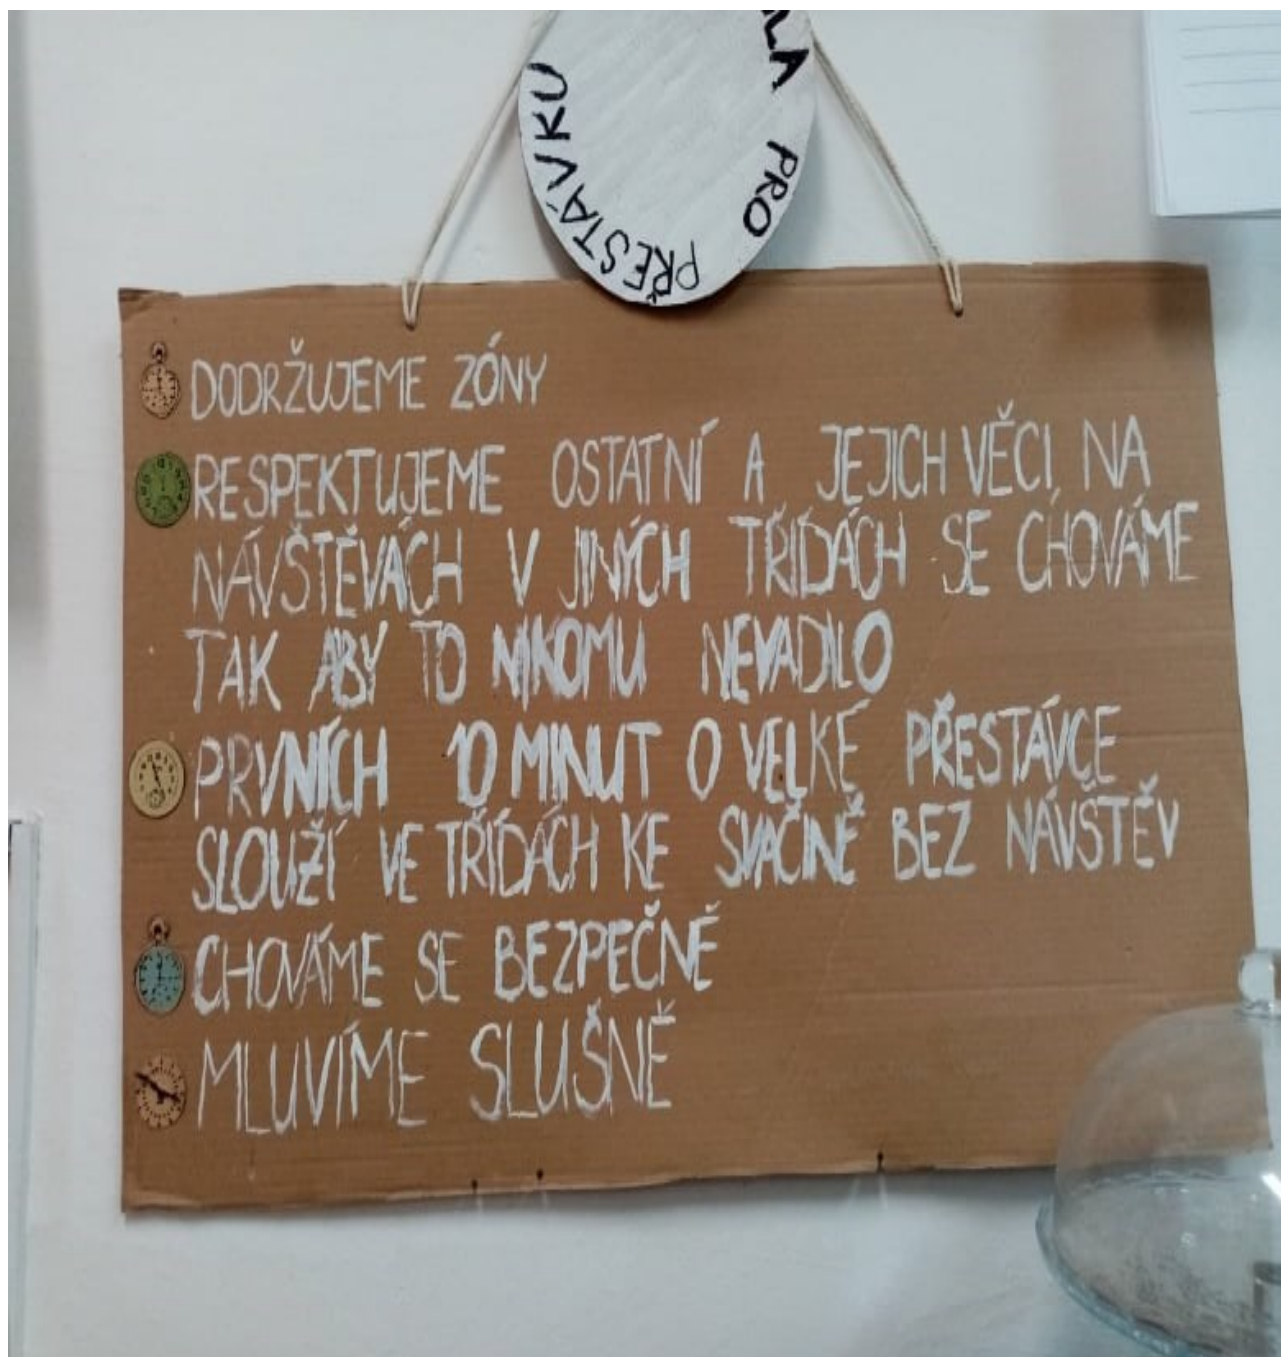 LA PRO PŘESTÁVKU
DODRŽUJEME ZÓNY
RESPEKTUJEME OSTATNÍ A JEJICH VĚCI, NA
NÁVŠTĚVÁCH V JINÝCH TŘÍDÁCH SE CHOVÁME
TAK ABY TO NIKOMU NEVADILO
PRVNÍCH 10 MINUT O VELKÉ PŘESTÁVCE
SLOUŽÍ VE TŘÍDÁCH KE SVAČINĚ BEZ NÁVŠTĚV
CHOVÁME SE BEZPEČNĚ
MLUVÍME SLUŠNĚ